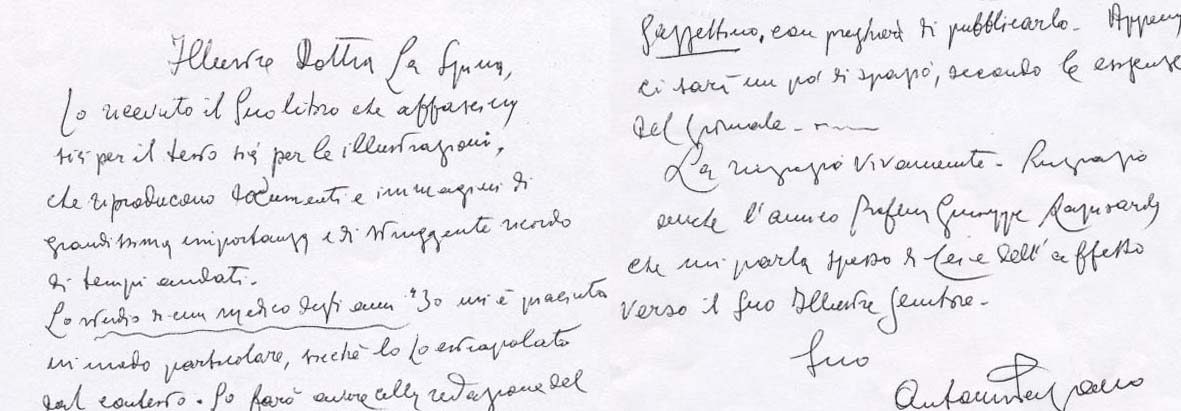 Illustre Dott. La Spina,
Ho ricevuto il Suo libro che affascina
sia per il testo sia per le illustrazioni,
che riproducono documenti e immagini di
grandissima importanza e di struggente ricordo
di tempi andati.
Lo studio di un medico degli anni '30 mi è piaciuto
in modo particolare, sicchè lo ho estrapolato
dal contesto. Lo farò avere alla redazione del
Gazzettino, con preghiera di pubblicarlo. Appena
ci sarà un po' di spazio, secondo le esigenze
del giornale.
La ringrazio vivamente. Ringrazio
anche l'amico Giuseppe
che mi parla spesso di Lei e dell'affetto
verso il Suo Illustre Genitore.
Suo